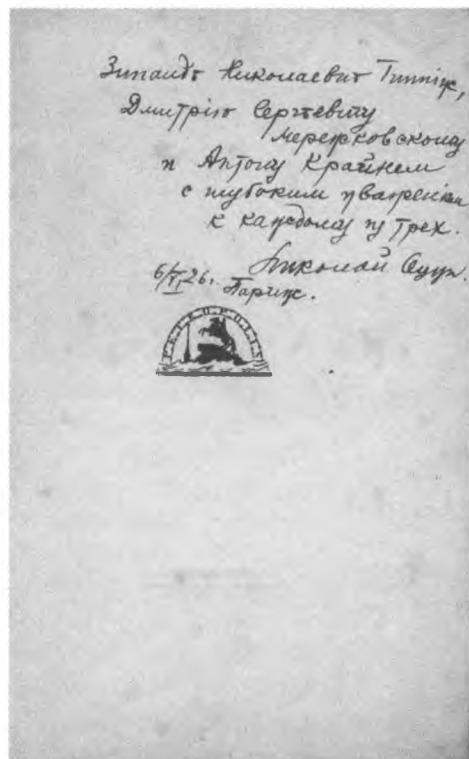 Зинаидѣ Николаевнѣ Гиппіус,
Дмитрію Сергѣевичу
Мережковскому
и Антону Крайнему
с глубоким уваженіем
к каждому из трех.
Николай Оцуп.
6/VI 26. Париж.
PETROPOLIS